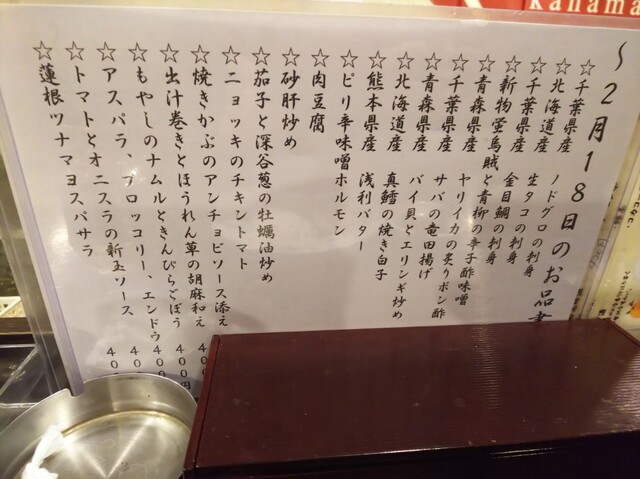 kanama
～２月１８日のお品書
☆千葉県産 ノドグロの刺身
☆北海道産 生タコの刺身
☆千葉県産 金目鯛の刺身
☆新物蛍烏賊と青柳の辛子酢味噌
☆青森県産 ヤリイカの炙りポン酢
☆千葉県産 サバの竜田揚げ
☆青森県産 バイ貝とエリンギ炒め
☆北海道産 真鱈の焼き白子
☆熊本県産 浅利バター
☆ピリ辛味噌ホルモン
☆肉豆腐
☆砂肝炒め
☆茄子と深谷葱の牡蠣油炒め
☆ニョッキのチキントマト
☆焼きかぶのアンチョビソース添え
☆出汁巻きとほうれん草の胡麻和え ４０
☆もやしのナムルときんぴらごぼう ４００円
☆アスパラ、ブロッコリー、エンドウ ４００
☆トマトとオニスラの新玉ソース ４０
☆蓮根ツナマヨスパサラ